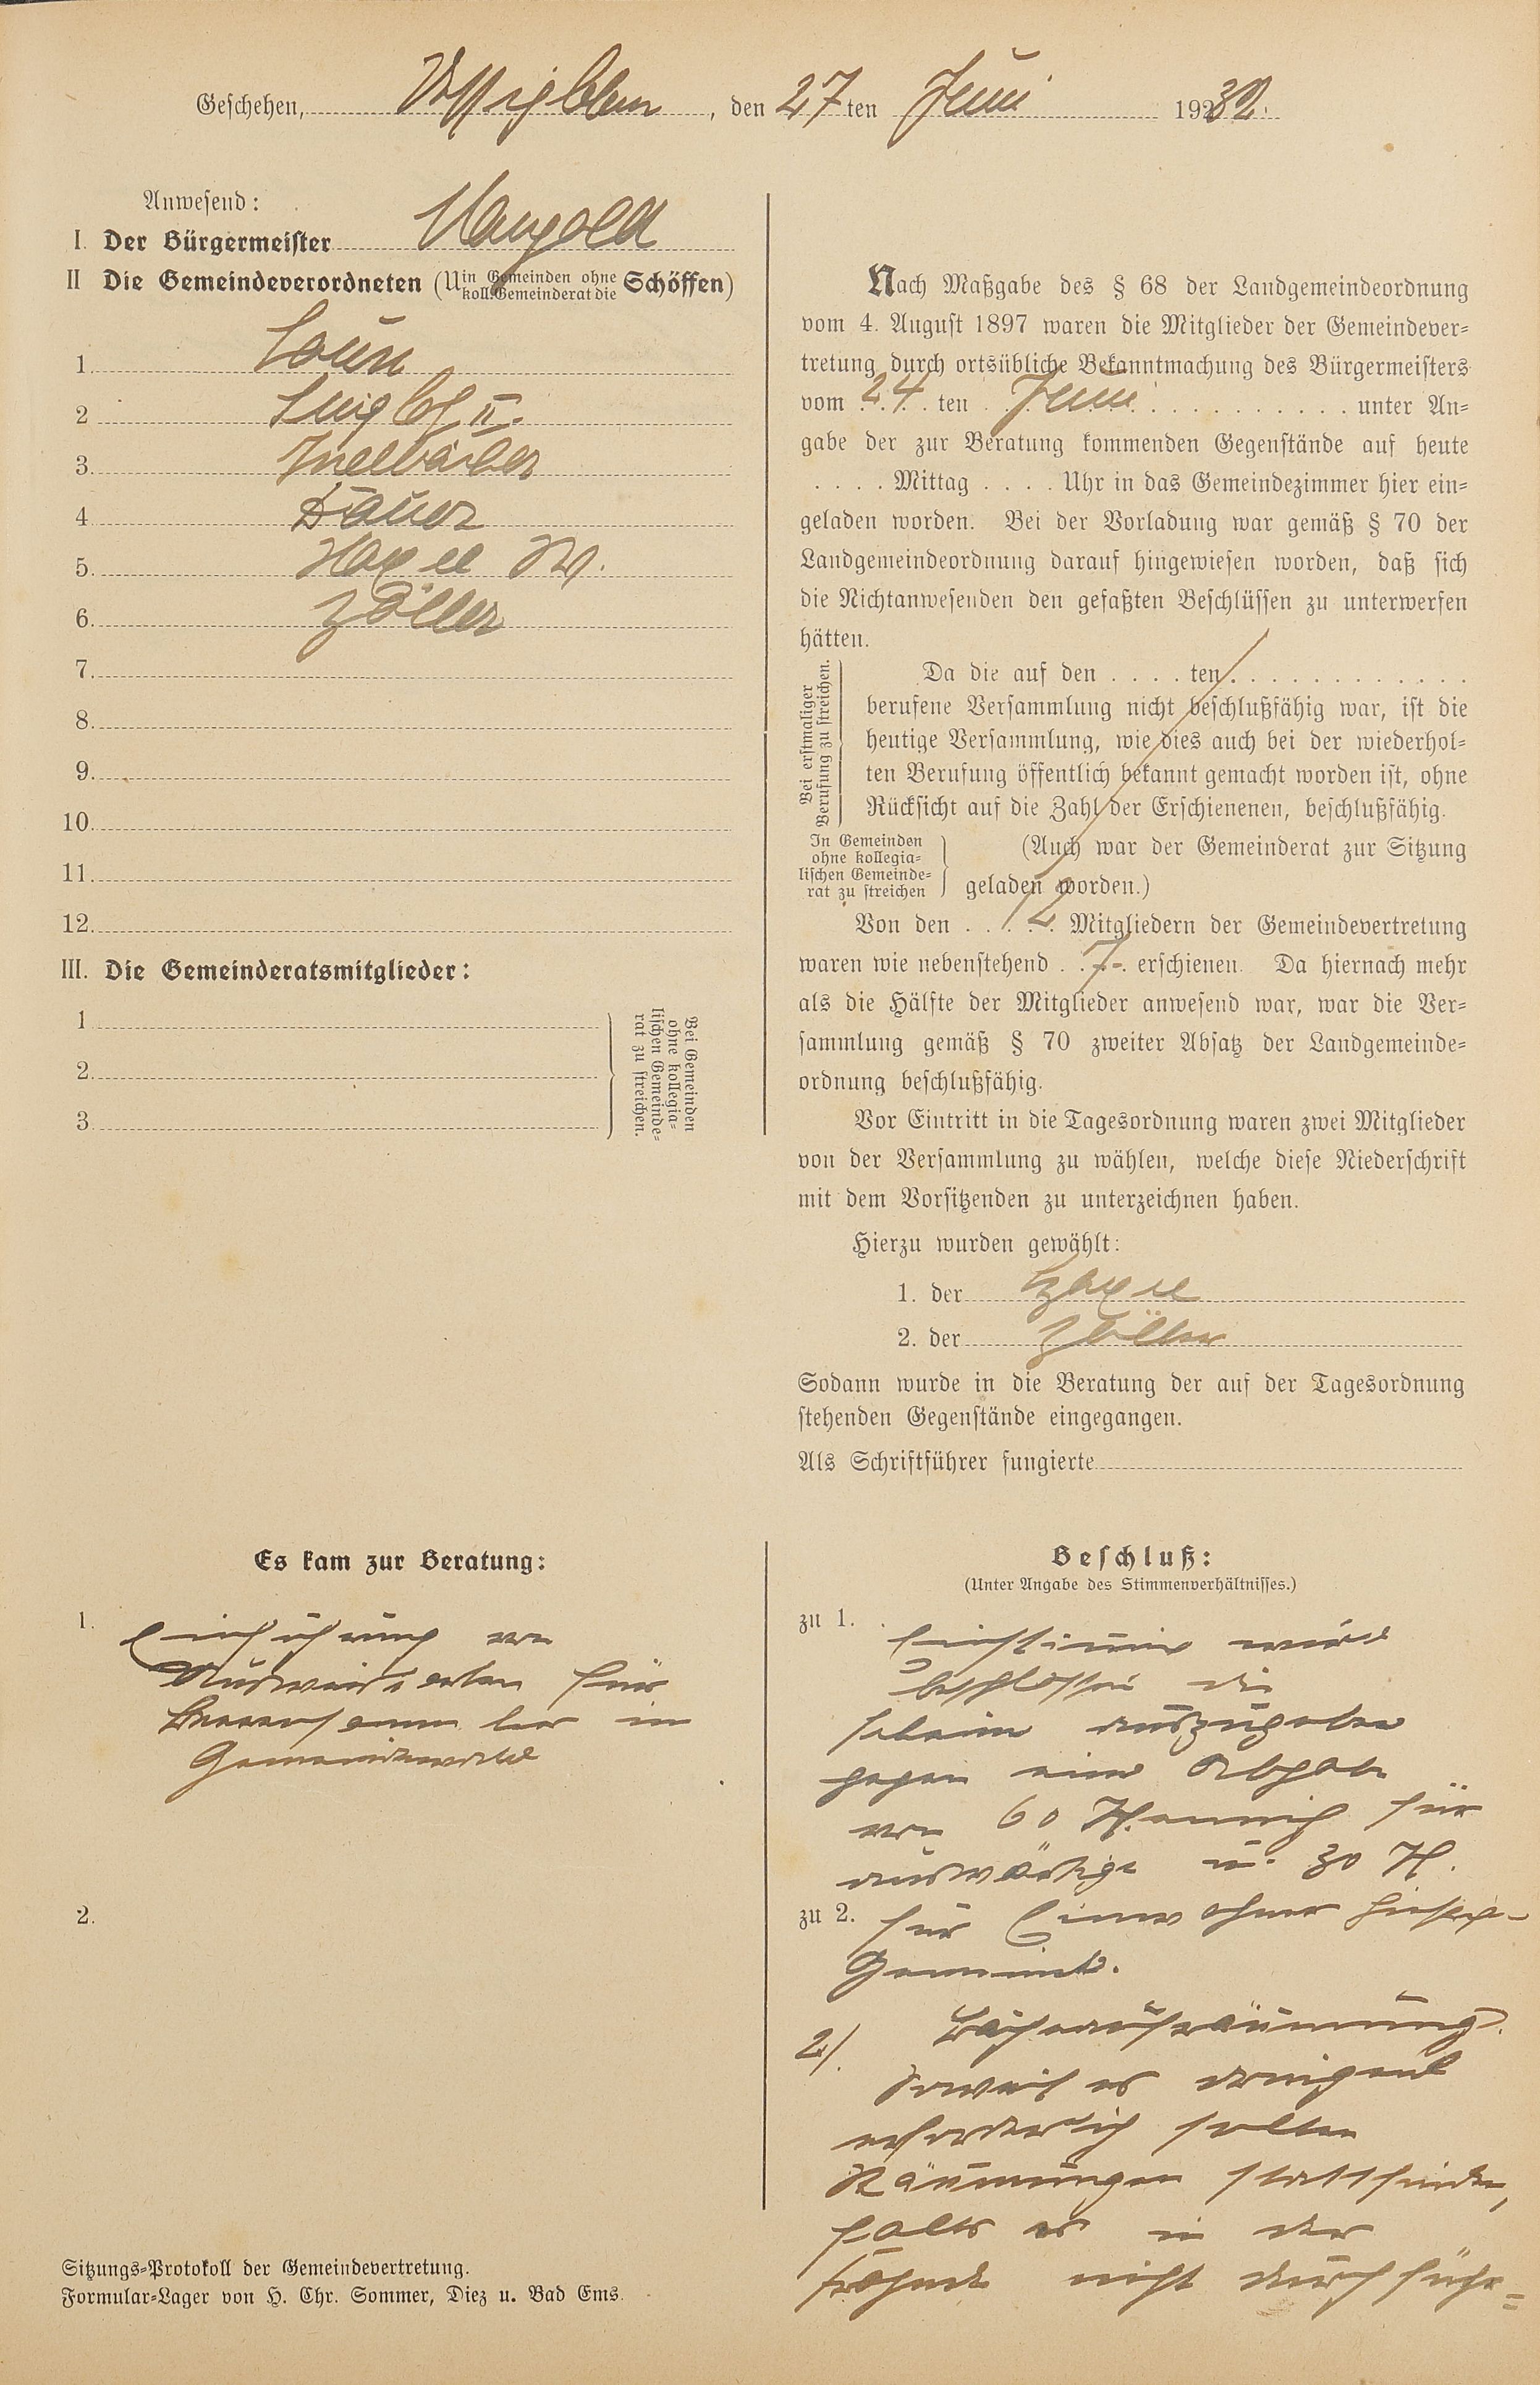 Geschehen, den 27ten Juni 1932.
Anwesend:
I. Der Bürgermeister
II Die Gemeindeverordneten (U in Gemeinden ohne koll. Gemeinderat die Schöffen)
1
2 II.
3.
4 Bauer
5.
6. Zöller
7.
8.
9.
10.
11.
12.
III. Die Gemeinderatsmitglieder:
1
2.
3.
Bei Gemeinden
ohne kollegia-
lischen Gemeinde-
rat zu streichen.
Nach Maßgabe des § 68 der Landgemeindeordnung
vom 4. August 1897 waren die Mitglieder der Gemeindever-
tretung durch ortsübliche Bekanntmachung des Bürgermeisters
vom 24 ten Juni unter An-
gabe der zur Beratung kommenden Gegenstände auf heute
. . . . Mittag . . . . Uhr in das Gemeindezimmer hier ein-
geladen worden. Bei der Vorladung war gemäß § 70 der
Landgemeindeordnung darauf hingewiesen worden, daß sich
die Nichtanwesenden den gefaßten Beschlüssen zu unterwerfen
hätten.
Bei erstmaliger
Berufung zu streichen.
Da die auf den . . . . ten . . . . . . . . . . . .
berufene Versammlung nicht beschlußfähig war, ist die
heutige Versammlung, wie dies auch bei der wiederhol-
ten Berufung öffentlich bekannt gemacht worden ist, ohne
Rücksicht auf die Zahl der Erschienenen, beschlußfähig.
In Gemeinden
ohne kollegia-
lischen Gemeinde-
rat zu streichen
(Auch war der Gemeinderat zur Sitzung
geladen worden.)
Von den 12 Mitgliedern der Gemeindevertretung
waren wie nebenstehend 7 erschienen. Da hiernach mehr
als die Hälfte der Mitglieder anwesend war, war die Ver-
sammlung gemäß § 70 zweiter Absatz der Landgemeinde-
ordnung beschlußfähig.
Vor Eintritt in die Tagesordnung waren zwei Mitglieder
von der Versammlung zu wählen, welche diese Niederschrift
mit dem Vorsitzenden zu unterzeichnen haben.
Hierzu wurden gewählt:
1. der
2. der Zöller
Sodann wurde in die Beratung der auf der Tagesordnung
stehenden Gegenstände eingegangen.
Als Schriftführer fungierte
Es kam zur Beratung:
1. Einführung von
Ausweiskarten für
Beerensammler im
Gemeindewald
2.
Beschluß:
(Unter Angabe des Stimmenverhältnisses.)
zu 1. Einstimmig wurde
beschlossen die
Scheine auszugeben
gegen eine Abgabe
von 60 Pfennig für
auswärtige u. 30 Pf.
zu 2. für Einwohner hiesiger
Gemeinde.
2/.
soweit es dringend
erforderlich sollen
Räumungen stattfinden,
falls es in der
nicht durchführ=
Sitzungs-Protokoll der Gemeindevertretung.
Formular-Lager von H. Chr. Sommer, Diez u. Bad Ems.